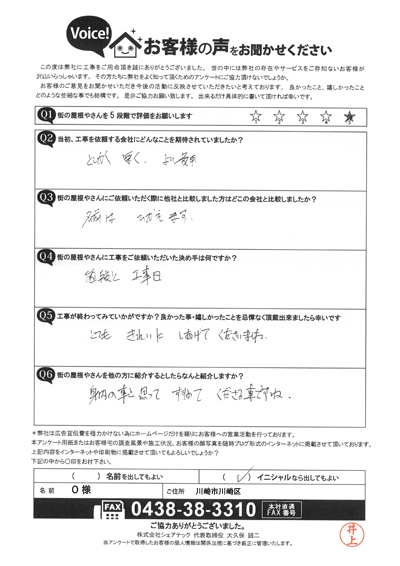 Voice!
お客様の声をお聞かせください
この度は弊社に工事をご用命頂き誠にありがとうございました。世の中には弊社の存在やサービスをご存知ないお客様が
沢山いらっしゃいます。その方たちに弊社をよく知って頂くためのアンケートにご協力頂けないでしょうか。
お客様のご意見をお聞かせいただき今後の活動に反映させていただきたいと考えております。良かったこと、嬉しかったこと
どのような些細な事でも結構です。是非ご協力お願い致します。出来るだけ具体的に書いて頂ければ幸いです。
Q1 街の屋根やさんを5段階で評価をお願いします ☆ ☆ ☆ ☆ ★
Q2 当初、工事を依頼する会社にどんなことを期待されていましたか?
とにかく 早く、よい
Q3 街の屋根やさんにご依頼いただく際に他社と比較しました方はどこの会社と比較しましたか?
ひかえます。
Q4 街の屋根やさんに工事をご依頼いただいた決め手は何ですか?
値段と 工事日
Q5 工事が終わってみていかがですか?良かった事・嬉しかったことを忌憚なく頂戴出来ましたら幸いです
とても きれいに しあげて くださいました。
Q6 街の屋根やさんを他の方に紹介するとしたらなんと紹介しますか?
身内の事と思って すすめて くださる事ですね。
*弊社は広告宣伝費を極力かけない為にホームページだけを頼りにお客様への営業活動を行っております。
本アンケート用紙またはお客様宅の調査風景や施工状況、お客様の顔写真を随時ブログ形式のインターネットに掲載させて頂いております。
上記内容をインターネットや印刷物に掲載させて頂いてもよろしいでしょうか?
下記の中から〇印をお付下さい。
( ) 名前を出してもよい (✓) イニシャルなら出してもよい
名前 O様 ご住所 川崎市川崎区
FAX 0438-38-3310 本社直通 FAX番号
ご協力ありがとうございました。
株式会社シェアテック 代表取締役 大久保 誠二
当アンケートで取得したお客様の個人情報は関係法規に基づき厳正に管理いたします。
井上